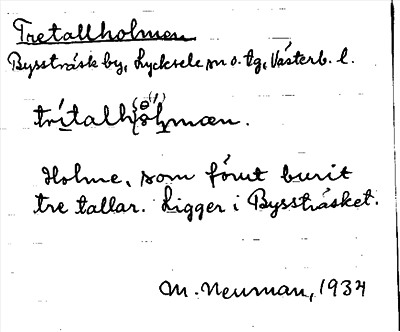 Tretallholmen
Bysträsk by, Lycksele sn o. tg, Västerb. l.
Holme, som förut burit
tre tallar. Ligger i Bysträsket.
M. Neuman, 1934